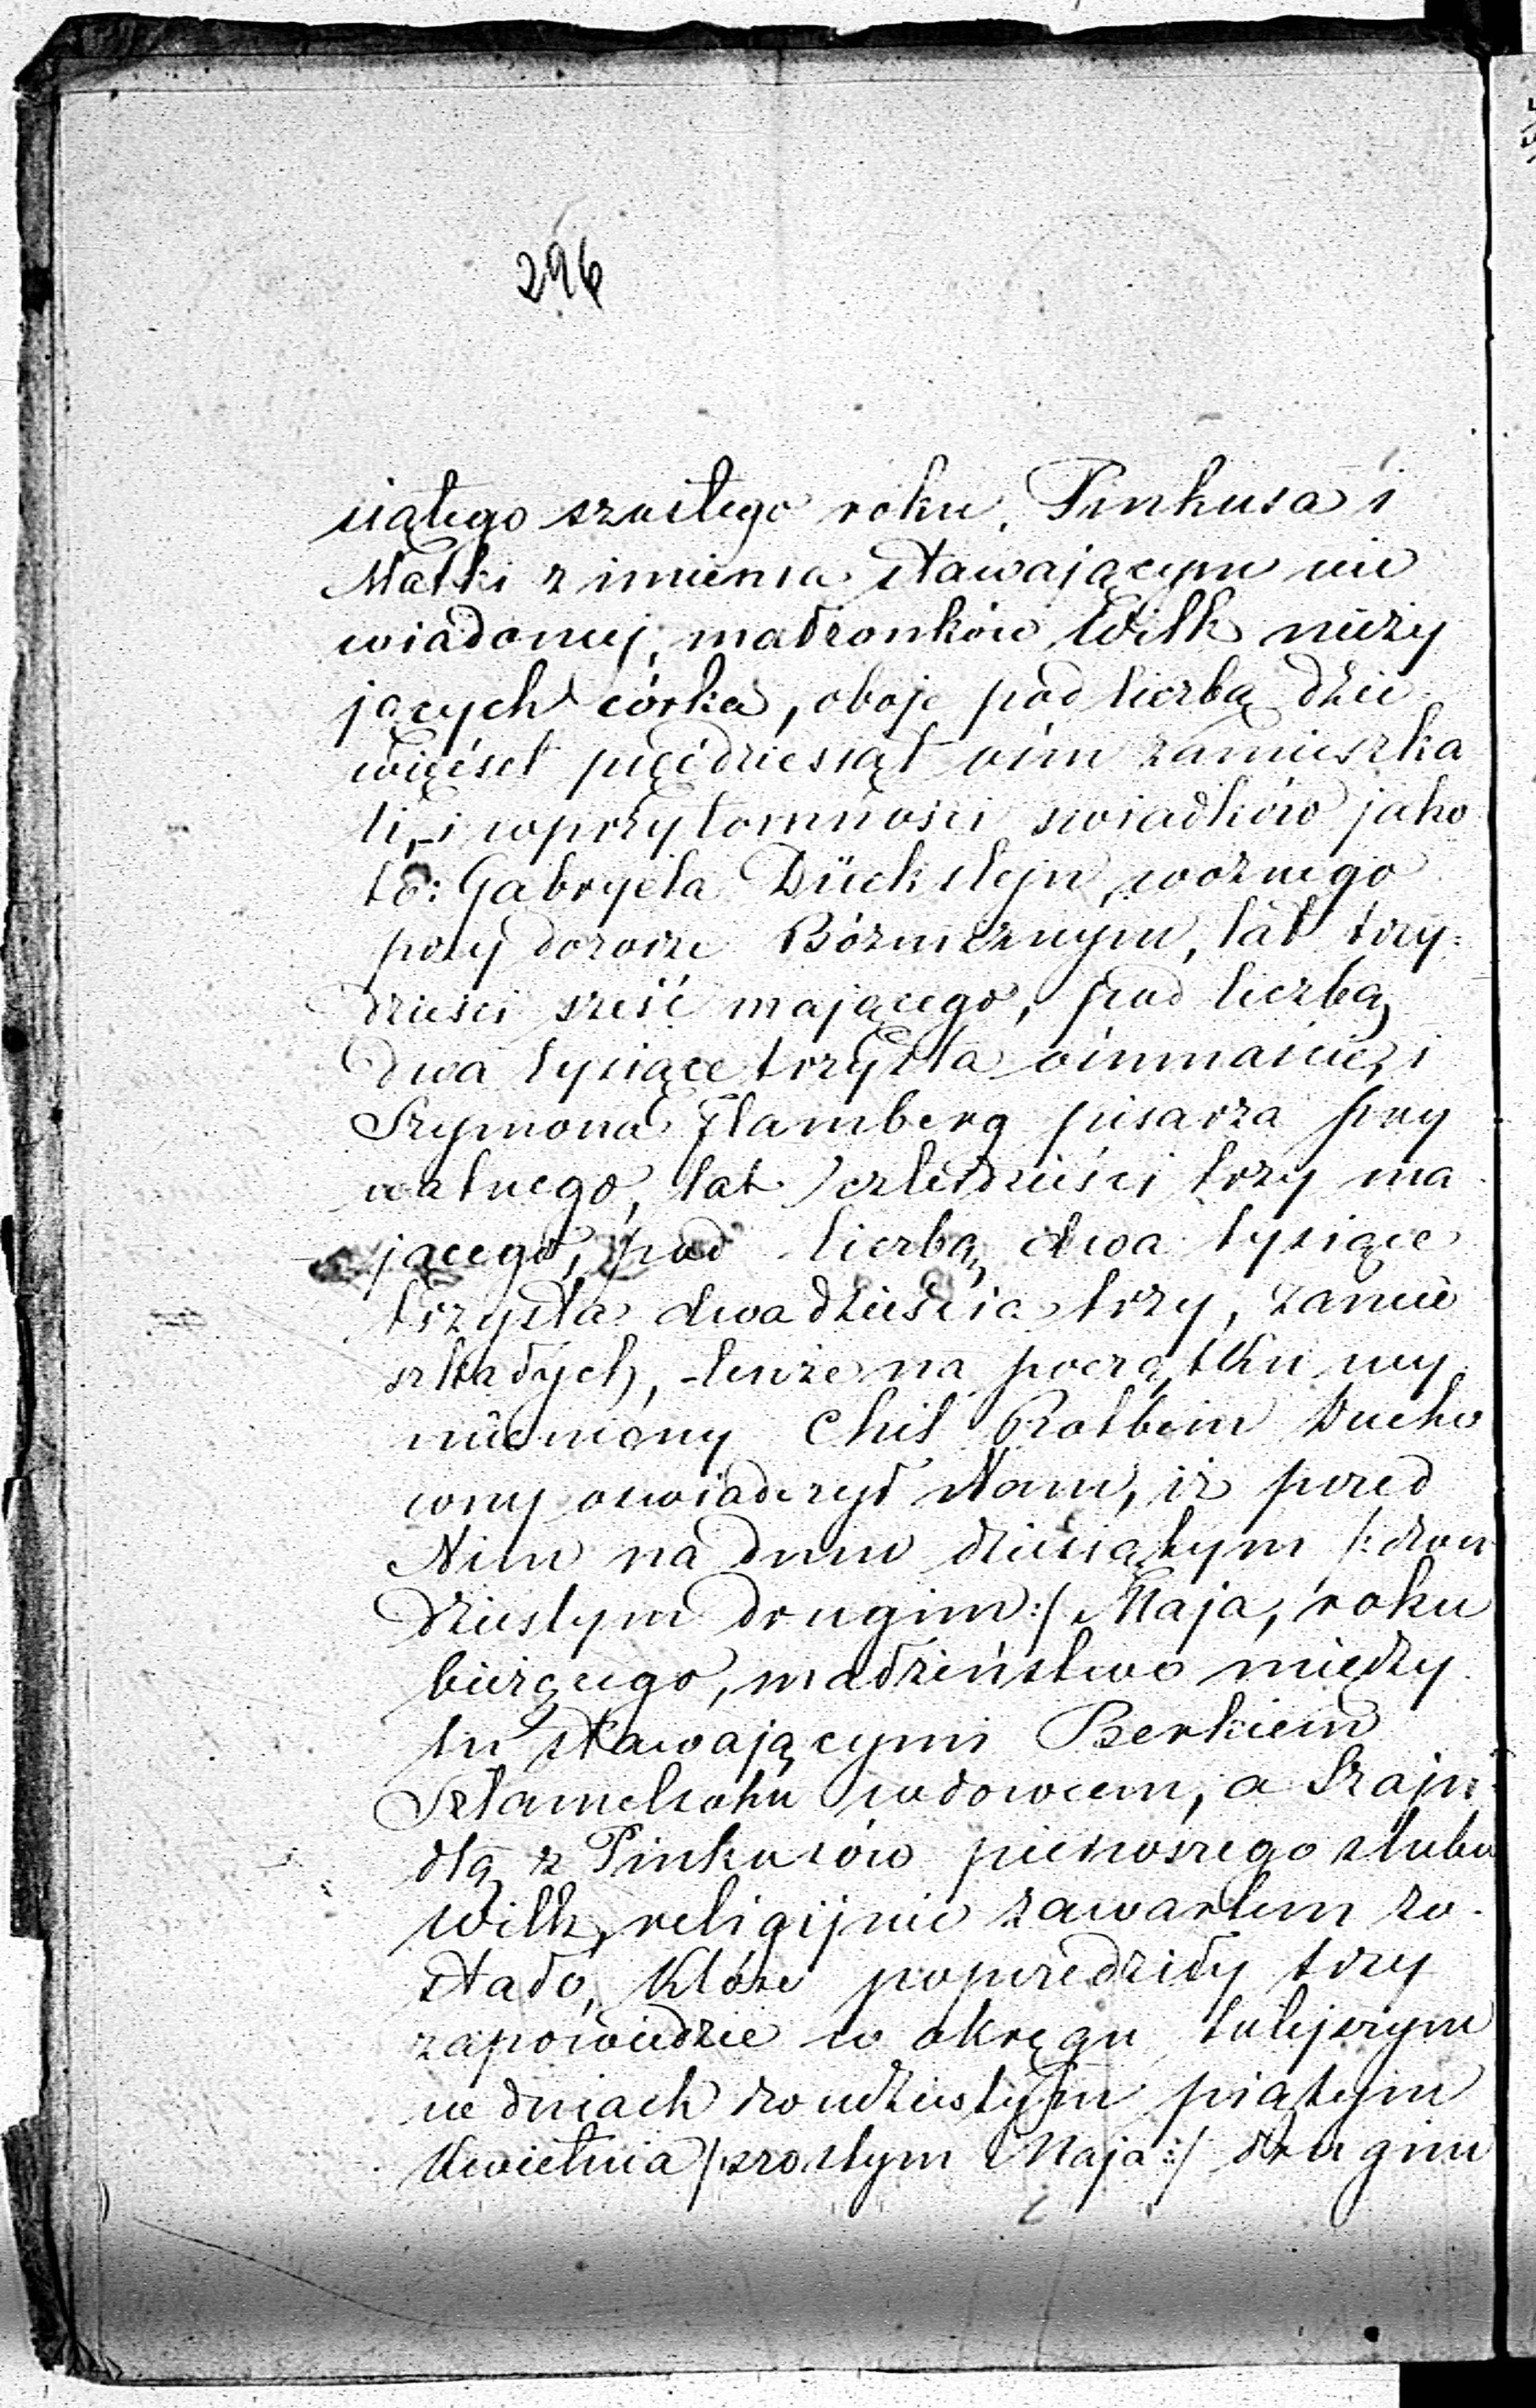 296
siątego szóstego roku, Pinkusa i
Matki z imienia stawającym nie
wiadomej, małżonków Wilk nieży
jących córka, oboje pod liczbą dzie
więćset pięćdziesiąt ośm zamieszka
li, i w przytomności świadków jako
to: Gabryela Dückstejn, woźnego
przy dozorze Bóźnicznym, lat trzy=
dzieści sześć mającego, pod liczbą
dwa tysiące trzysta ośmnaście, i
Szymona Flamberg pisarza pry
watnego, lat czterdzieści trzy ma
jącego, pod liczbą dwa tysiące
trzysta dwadzieścia trzy, zamie
szkałych, tenże na początku wy
mieniony Chil Rotbein Ducho
wny oświadczył Nam, iż przed
Nim na dniu dziesiątym /: dwu
dziestym drugim :/ Maja, roku
bieżącego, małżeństwo między
tu stawającymi Berkiem
Szlamelsohn wdowcem, a Szajn=
dlą z Pinkusów pierwszego ślubu
Wilk, religijnie zawartem zo
stało, które poprzedziły trzy
zapowiedzie w okręgu tutejszym
w dniach dwudziestym piątym
Kwietnia /: szóstym Maja :/ drugim